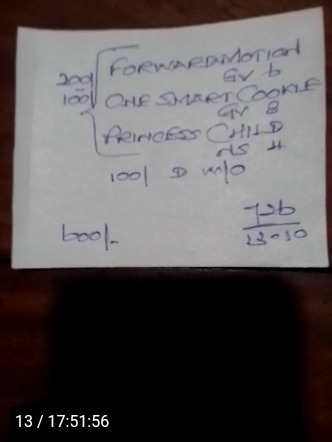 FORWARD MOTION
200/ GV 6
100/ ONE SMART COOKIE
GV 8
PRINCESS CHILD
NS 4
100/ D W/O
600/- 726
13-10
13 / 17:51:56